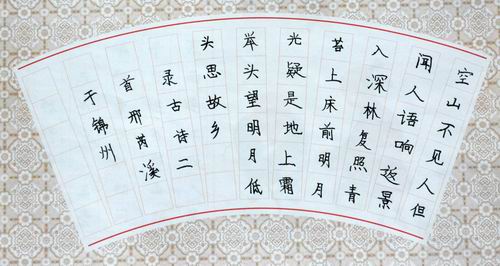 空山不见人但
闻人语响返景
入深林复照青
苔上床前明月
光疑是地上霜
举头望明月低
头思故乡
录古诗二
首邢芮溪
于锦州